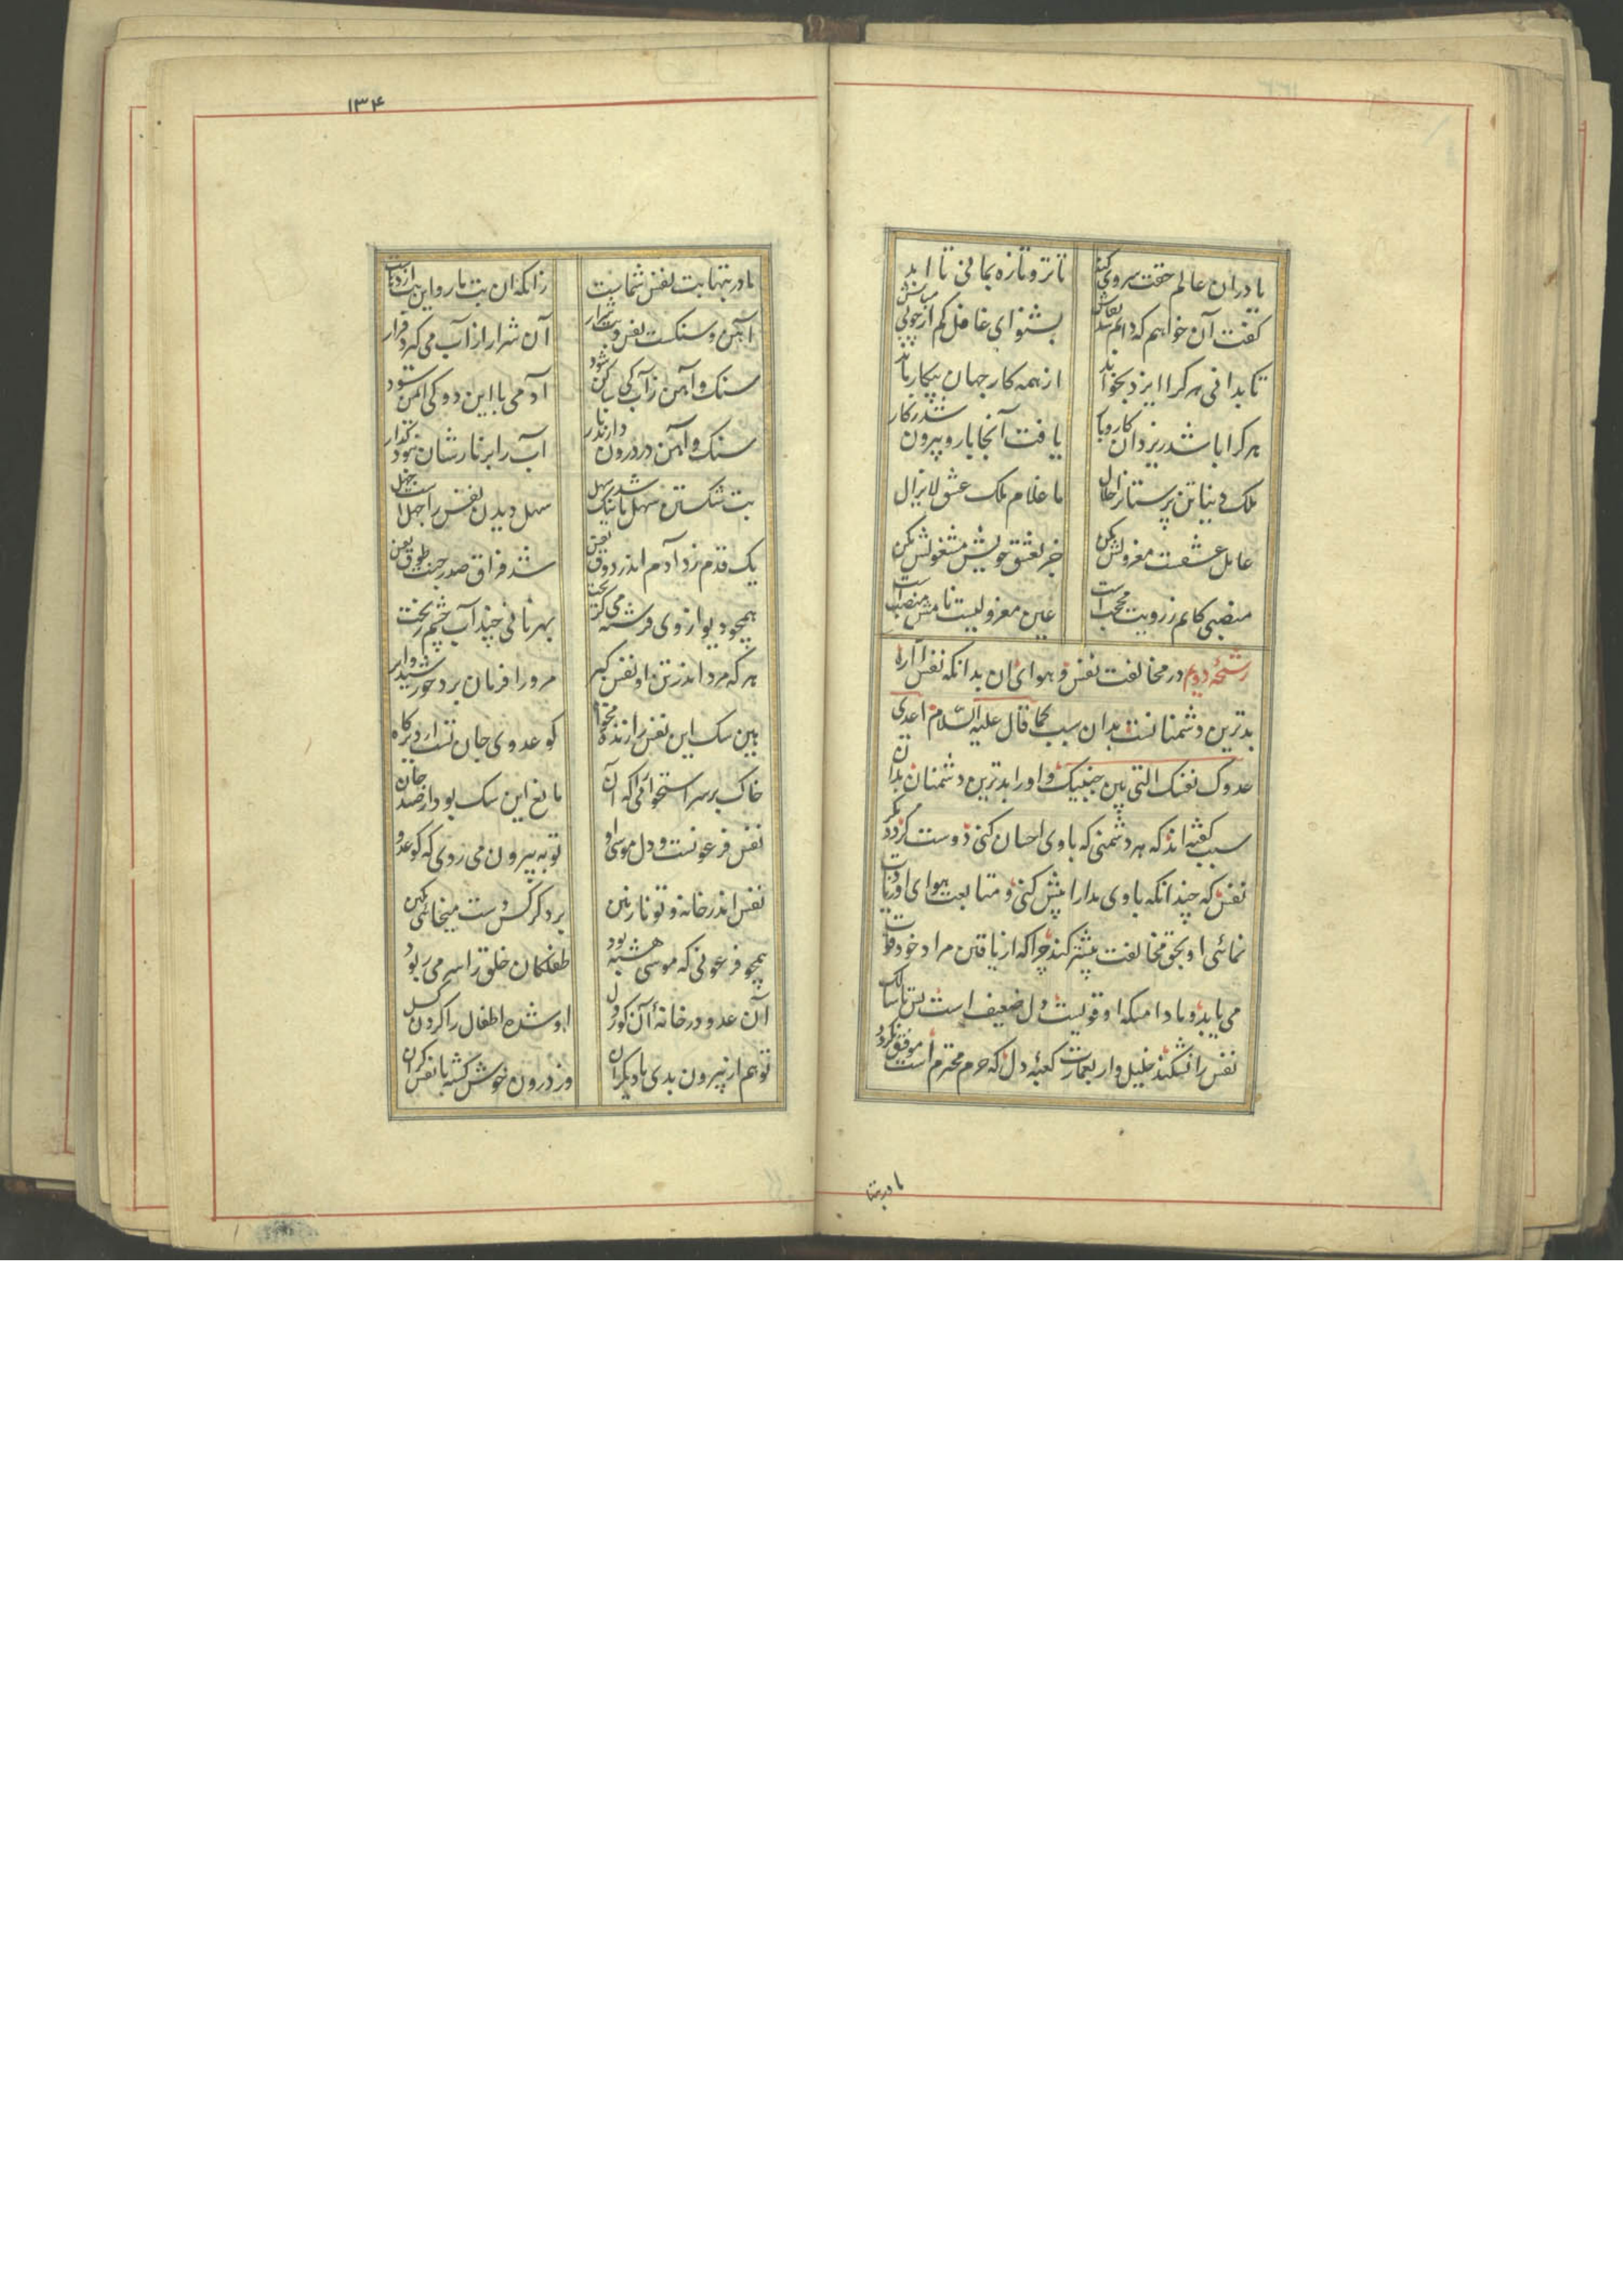 یا دران عالم حقت سروی کند تا تر و تازه بمانی تا ابد
گفت آن خواهم که دائم شد بقاش بشنو ای غافل کم از چوبی مباش
تا بدانی هر کرا ایزد بخواند از همه کار جهان بیکار ماند
هر کرا باشد ز یزدان کار و بار یافت آنجا بار و بیرون شد ز کار
ملک دنیا تن پرستانرا حلال ما غلام ملک عشق لایزال
عامل عشقست معزولش مکن جز بعشق خویش مشغولش مکن
منصبی کانم ز رویت محجب است عین معزولیست نامش منصب است
رشحهٔ دویم در مخالفت نفس و هوای ان بدانکه نفس اماره
بدترین دشمنانست بدان سبب کما قال علیه السلام اعدی
عدوک نفسک التی بین جنبیک و او را بدترین دشمنان بدان
سبب گفته اند که هر دشمنی که با وی احسان کنی دوست گردد مگر
نفس که چندانکه با وی مدارا بیش کنی و متابعت هوای او زیادت
نمائی او بحق مخالفت بیشتر کند چرا که از یافتن مراد خود قوت
می یابد و مادامیکه او قویست دل ضعیف است پس تا سالک
نفس را نشکند خلیل وار بعمارت کعبهٔ دل که حرم محترم است موفق نگردد
مادر بتها
۱۳۴
مادر بتها بت نفس شماست زانکه ان بت مار و این بت اژدهاست
آهن و سنگست نفس و بت شرار آن شرار از آب می گیرد قرار
سنک و آهن ز آب کی ساکن شود آدمی با این دو کی ایمن شود
سنک و آهن در درون دارند نار آب را بر نارشان نبود گذار
بت شکستن سهل باشد نیک سهل سهل دیدن نفس را جهل است جهل
یک قدم زد آدم اندر ذوق نفس شد فراق صدر جنت طوق نفس
همچو دیو از وی فرشته می گریخت بهر نانی چند آب چشم ریخت
هر که مرد اندر تن او نفس گبر مر ورا فرمان برد خورشید و ابر
بین سک این نفس را زنده مخواه کو عدوی جان تست از دیرگاه
خاک بر سر استخوانی را که آن مانع این سک بود از صید جان
نفس فرعونست و دل موسی او تو به بیرون می روی که کو عدو
نفس اندر خانه و تو نازنین بر دگر کس دست میخائی بکین
همچو فرعونی که موسی هشته بود طفلکان خلق را سر می ربود
آن عدو در خانهٔ آن کور دل او شده اطفال را گردن گسل
تو هم از بیرون بدی با دیگران وز درون خوش گشته با نفس گران